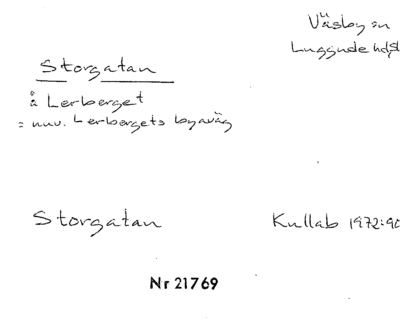 Väsby sn
Luggude hd, Sk
Storgatan
å Lerberget
= nuv. Lerbergets byaväg
Storgatan
Kullab 1972:90
Nr 21769